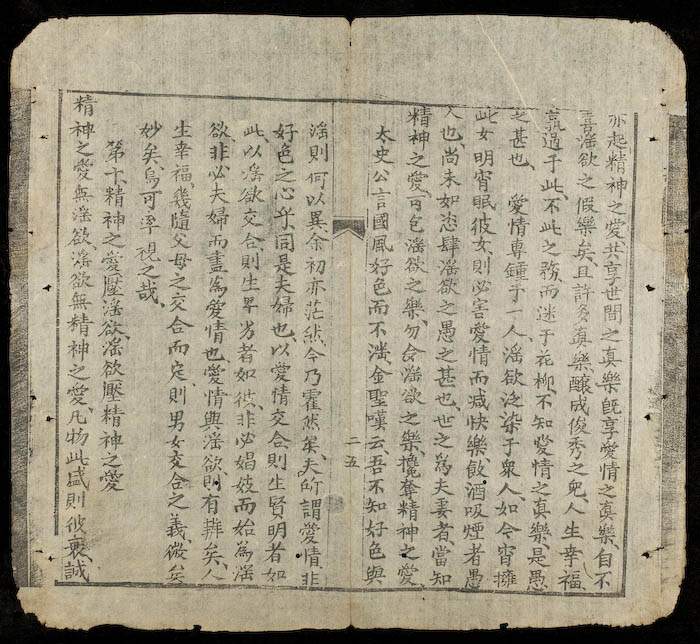 亦起、精神之愛共享世間之眞樂、旣享愛情之眞樂、自不
喜滛欲之假樂矣、且許多眞樂、釀成俊秀之兒、人生幸福、
孰過于此、不此之務、而迷于花柳、不知愛情之眞樂、是愚
之甚也、愛情專鍾于一人、滛欲泛染于衆人、如今宵擁
此女、明宵眠彼女、則必害愛情而减快樂、飮酒吸煙者愚
人也、尚未如恣肆滛欲之愚之甚也、世之爲夫妻者、當知
精神之愛、可包滛欲之樂、勿令滛欲之樂、攙奪精神之愛
太史公言國風好色而不滛、金聖嘆云、吾不知好色與
二五
滛則何以異、余初亦茫然、今乃霍然矣、夫所謂愛情、非
好色之心乎、同是夫婦也、以愛情交合、則生賢明者如
此、以滛欲交合、則生卑劣者如彼、非必娼妓而始爲滛
欲、非必夫婦而盡爲愛情也、愛情與滛欲、則有辨矣、人
生幸福、幾隨父母之交合而定、則男女交合之義、微矣
妙矣、烏可率視之哉、
第十、精神之愛壓滛欲、滛欲壓精神之愛
精神之愛無滛欲、滛欲無精神之愛、凡物此盛則彼衰、誠